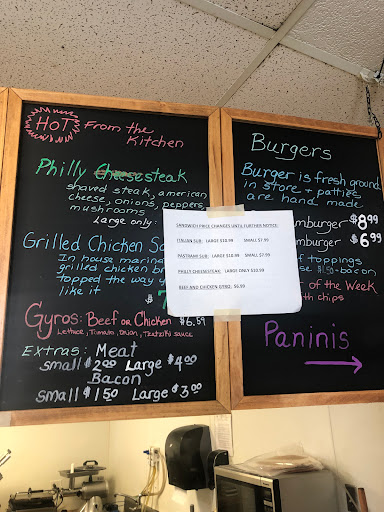 HOT From the
Kitchen
Philly Cheesesteak
shaved steak, american
cheese, onions, peppers
mushrooms
Large only:
Grilled Chicken
In house
grilled chicken
topped the way
like it
Gyros: Beef or Chicken $6.59
Lettuce, Tomato, Onion, Tzatziki sauce
Extras: Meat
small $2.00 Large $4.00
Bacon
small $1.50 Large $3.00
SANDWICH PRICE CHANGES UNTIL FURTHER NOTICE:
ITALIAN SUB: LARGE $10.99 SMALL $7.99
PASTRAMI SUB: LARGE $10.99 SMALL $7.99
PHILLY CHEESESTEAK: LARGE ONLY $10.99
BEEF AND CHICKEN GYRO: $6.99
Burgers
Burger is fresh ground
in store + patties
are hand made
mburger $8.99
mburger $6.99
of toppings
$1.50 - bacon
of the Week
th chips
Paninis